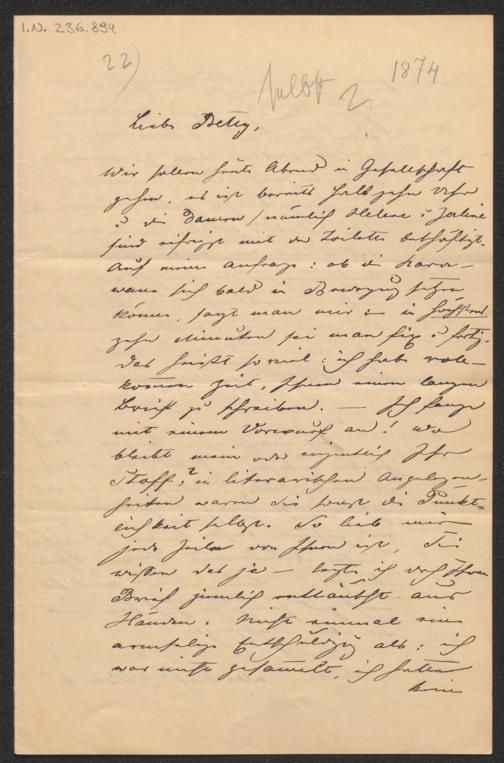 I.N. 236.894
22)
1874
2
Liebe Betty,
Wir sollen heute Abend in Gesellschaft
gehen, es ist bereits halb zehn Uhr
u die Damen / nämlich Helene u
sind eifrigst mit der Toilette beschäftigt.
Auf meine Anfrage: ob die Kara-
wane sich bald in Bewegung setzen
könne, sagt man mir: in höchstens
zehn Minuten sei man fix u fertig.
Das heißt so viel: ich habe voll-
kommen Zeit, Ihnen einen langen
Brief zu schreiben. — Ich fange
mit einem Vorwurf an! Wo
bleibt mein oder eigentlich Ihr
Stoff? in literarischen Angelegen-
heiten waren Sie sonst die Pünkt-
lichkeit selbst. So lieb mir
jede Zeile von Ihnen ist, Sie
wissen das ja — legte ich doch Ihren
Brief ziemlich enttäuscht aus
Händen. Nicht einmal eine
armselige Entschuldigg als: ich
war nicht gesammelt, ich hatte
keine